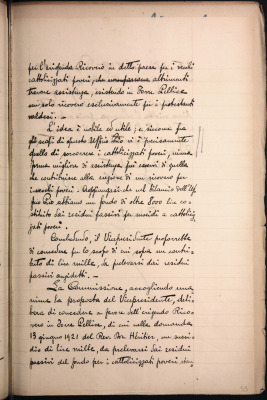 per l'erigendo Ricovero in detto paese per i vecchi
cattolizzati poveri, che non possono altrimenti
trovare assistenza, esistendo in Torre Pellice
un solo ricovero esclusivamente per i protestanti
valdesi. -
L'idea è nobile ed utile; e siccome fra
gli scopi di questo Uffizio Pio vi è precisamente
quello di soccorrere i cattolizzati poveri, niuna
forma migliore di assistenza può esservi di quella
di contribuire alla erezione di un ricovero per
i vecchi poveri. Aggiungasi che nel bilancio dell'Uf
fizio Pio abbiamo un fondo di oltre 8000 lire co
stituito dai residui passivi per sussidi a cattoliz
zati poveri.
Concludendo, il Vicepresidente proporrebbe
di concedere per lo scopo di cui sopra un contri-
buto di lire mille, da prelevarsi dai residui
passivi anzidetti. -
La Commissione, accogliendo una
nime la proposta del Vicepresidente, deli
bera di concedere a favore dell'erigendo Rico-
vero in Torre Pellice, di cui nella domanda
13 giugno 1921 del Rev. Don Héritier, un sussi
dio di lire mille, da prelevarsi dai residui
passivi del fondo per i cattolizzati poveri, stan